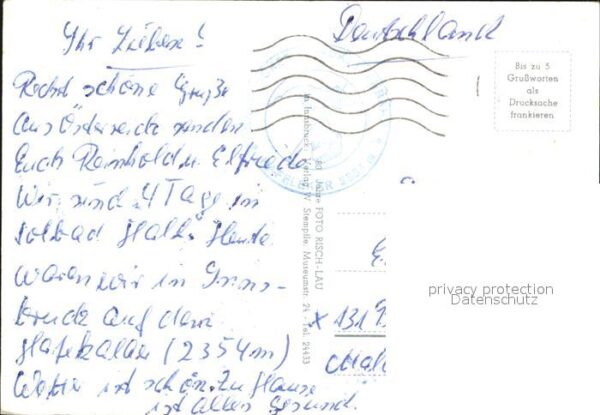 Deutschland
Ihr Lieben!
Recht schöne Grüße
aus Österreich senden
Euch Reinhold u. Elfriede
Wir sind 4 Tage in
Solbad Hall. Heute
waren wir in Inns-
bruck auf dem
Hafelekar (2354m)
Wetter ist schön. Zu Hause
ist alles gesund.
Bis zu 5
Grußworten
als
Drucksache
frankieren
80 Jahre FOTO RISCH-LAU
Innsbruck Verlag W. Stempfle, Museumstr. 24 - Tel. 24433
privacy protection
Datenschutz
x 131